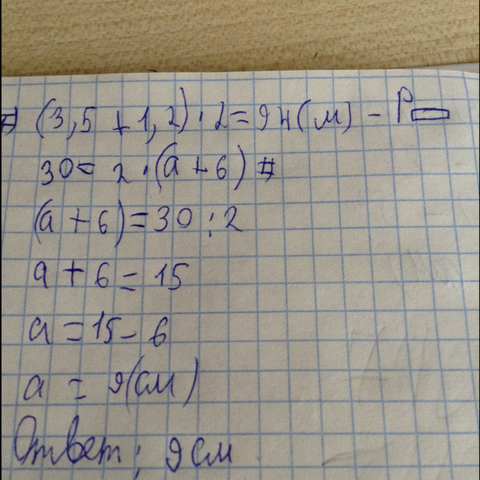 (3,5 + 1,2) · 2 = 9,4 (м) – P
30 = 2 · (a + 6)
(a + 6) = 30 : 2
a + 6 = 15
a = 15 – 6
a = 9 (см)
Ответ: 9 см